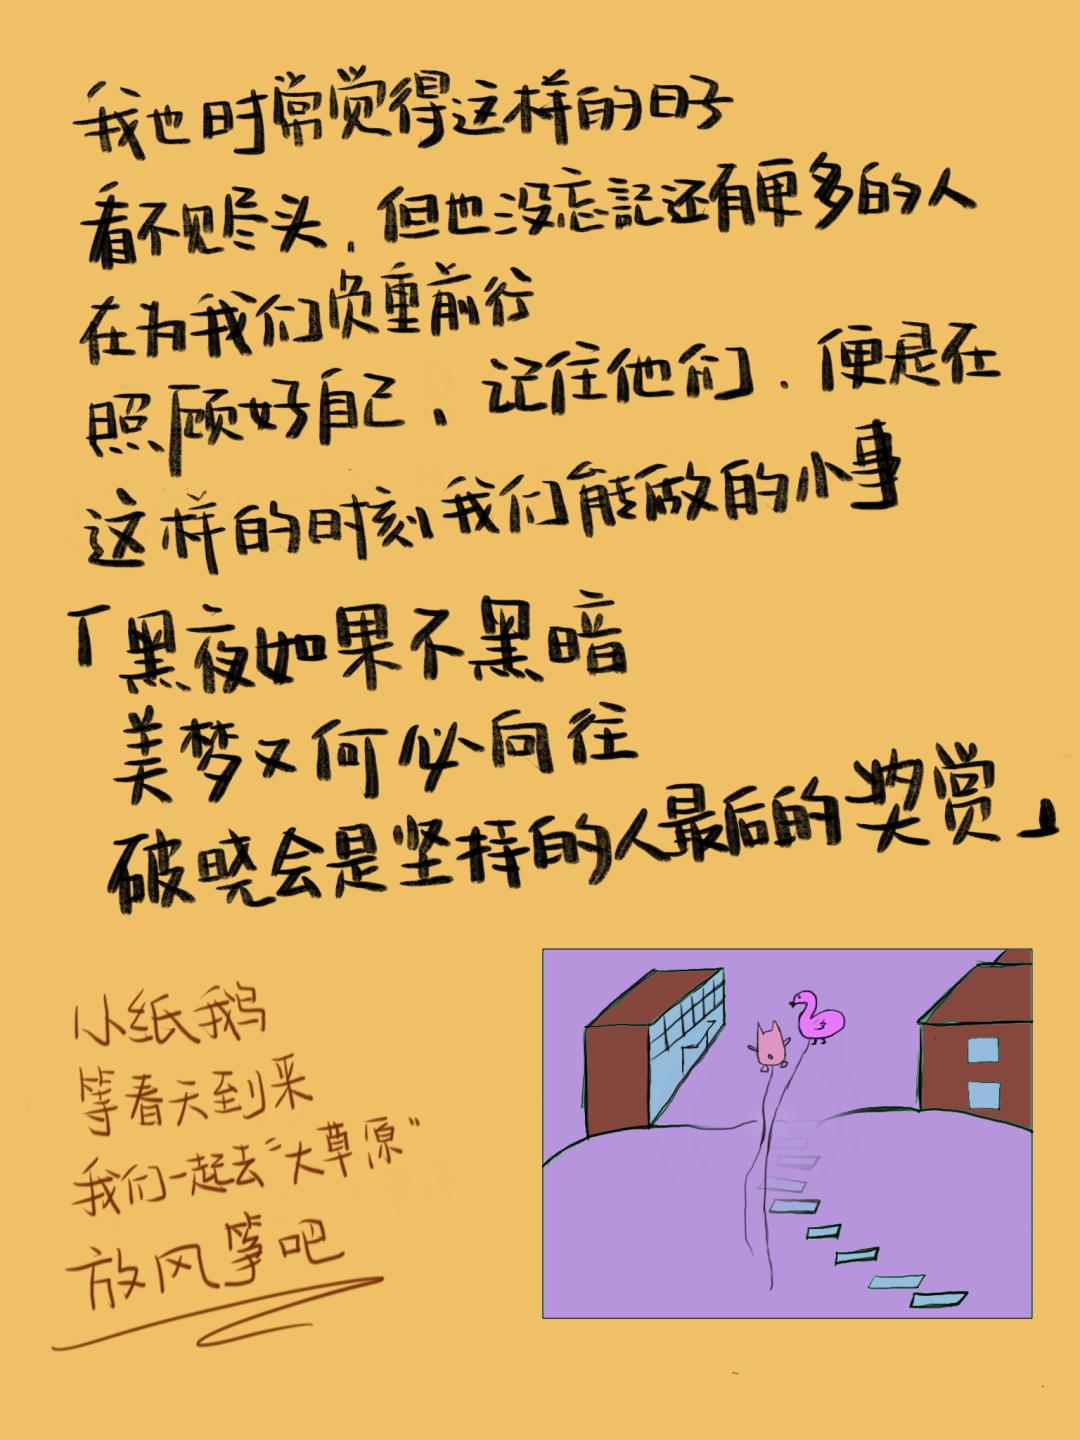 我也时常觉得这样的日子
看不见尽头，但也没忘記还有更多的人
在为我们负重前行
照顾好自己，记住他们，便是在
这样的时刻我们能做的小事
「黑夜如果不黑暗
美梦又何必向往
破晓会是坚持的人最后的奖赏」
小纸鹅
等春天到来
我们一起去“大草原”
放风筝吧